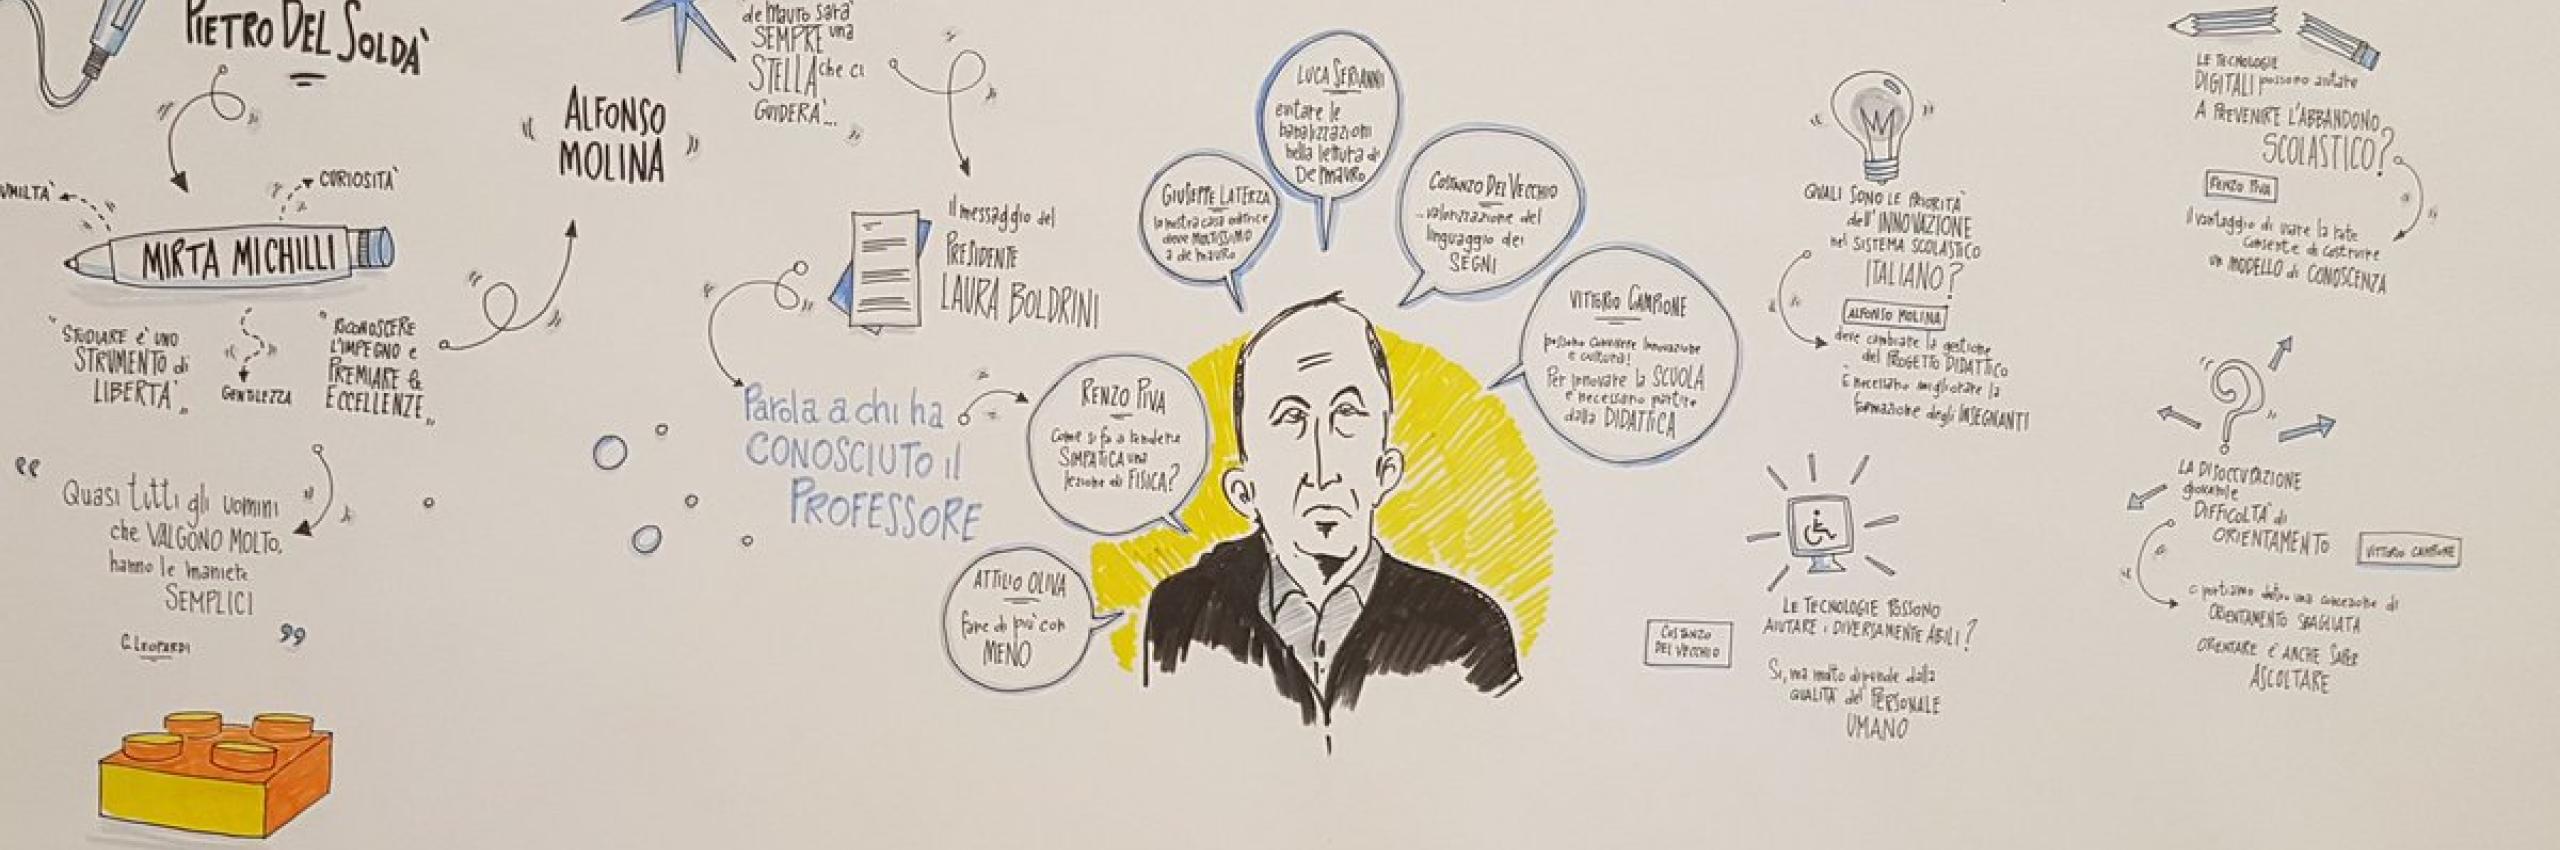 PIETRO DEL SOLDÀ
UMILTÀ
CURIOSITÀ
MIRTA MICHILLI
"STUDIARE è UNO
STRUMENTO di
LIBERTÀ"
GENTILEZZA
"RICONOSCERE
L'IMPEGNO e
PREMIARE le
ECCELLENZE"
"
Quasi tutti gli uomini
che VALGONO MOLTO,
hanno le maniere
SEMPLICI
"
G. LEOPARDI
" ALFONSO
MOLINA "
"de Mauro sarà
SEMPRE una
STELLA che ci
GUIDERÀ...
"
il messaggio del
PRESIDENTE
LAURA BOLDRINI
Parola a chi ha
CONOSCIUTO il
PROFESSORE
ATTILIO OLIVA
fare di più con
MENO
RENZO PIVA
Come si fa a rendere
SIMPATICA una
lezione di FISICA?
GIUSEPPE LATERZA
la nostra casa editrice
deve MOLTISSIMO
a de mauro
LUCA SERIANNI
evitare le
banalizzazioni
nella lettura di
De mauro
COSTANZO DEL VECCHIO
...valorizzazione del
linguaggio dei
SEGNI
VITTORIO CAMPIONE
possono convivere Innovazione
e cultura!
Per innovare la SCUOLA
è necessario partire
dalla DIDATTICA
QUALI SONO LE PRIORITÀ
dell'INNOVAZIONE
nel SISTEMA SCOLASTICO
ITALIANO?
ALFONSO MOLINA
deve cambiare la gestione
del PROGETTO DIDATTICO
È necessario migliorare la
formazione degli INSEGNANTI
LE TECNOLOGIE POSSONO
AIUTARE i DIVERSAMENTE ABILI?
COSTANZO
DEL VECCHIO
Si, ma molto dipende dalla
QUALITÀ del PERSONALE
UMANO
LE TECNOLOGIE
DIGITALI possono aiutare
A PREVENIRE L'ABBANDONO
SCOLASTICO?
RENZO PIVA
il vantaggio di usare la rete
Consente di costruire
un MODELLO di CONOSCENZA
LA DISOCCUPAZIONE
giovanile
DIFFICOLTÀ di
ORIENTAMENTO
VITTORIO CAMPIONE
ci portiamo dietro una concezione di
ORIENTAMENTO SBAGLIATA
ORIENTARE È ANCHE SAPER
ASCOLTARE